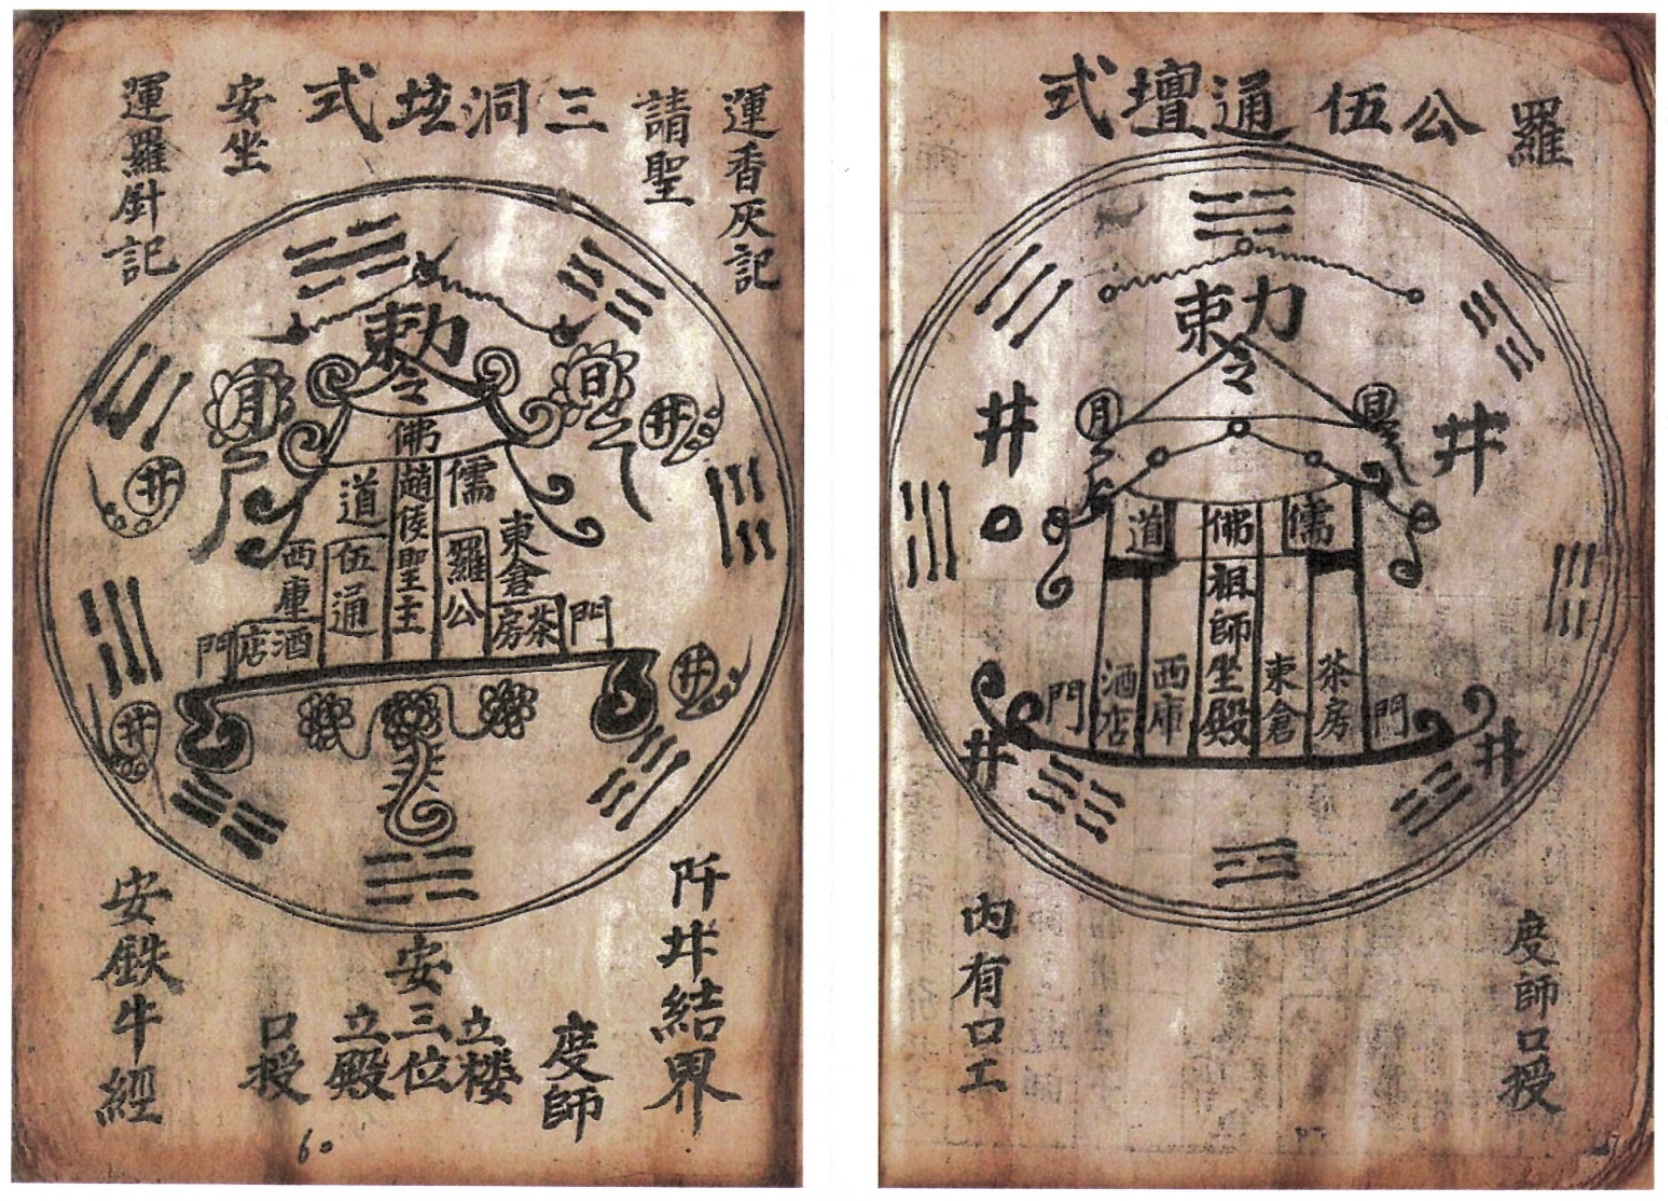 羅
公伍通壇式
勅令
月
日
井
井
道
佛
儒
祖師坐殿
門
酒店
西庫
東倉
茶房
門
井
井
度師口授
內有口工
運香灰記
請聖
三洞坛式
安坐
運羅針記
勅令
月
日
井
井
佛
趙侯聖主
道
伍通
儒
羅公
東倉
西庫
茶房
酒店
門
門
井
井
結界
度師
安
立楼
三位
立殿
口授
安鉄牛經
60